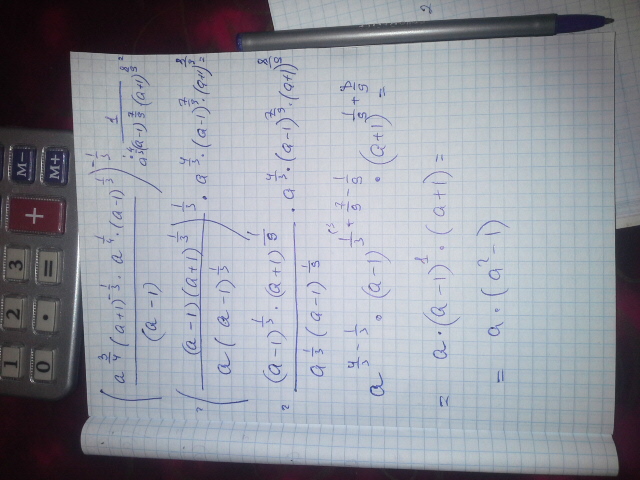 ( a^{3/4} (a+1)^{-1/3} · a^{1/4} · (a-1)^{1/3} / (a-1) )^{-1/3} : 1 / a^{4/3} (a-1)^{7/9} · (a+1)^{8/9} =
= ( (a-1) (a+1)^{1/3} / a (a-1)^{1/3} )^{1/3} · a^{4/3} · (a-1)^{7/9} · (a+1)^{8/9} =
= (a-1)^{1/3} · (a+1)^{1/9} / a^{1/3} (a-1)^{1/9} · a^{4/3} · (a-1)^{7/9} · (a+1)^{8/9}
a^{4/3 - 1/3} · (a-1)^{1/3 + 7/9 - 1/9} · (a+1)^{1/9 + 8/9} =
= a · (a-1)^{1} · (a+1) =
= a · (a^2 - 1)
M-
M+
+
3
=
2
·
1
0
2